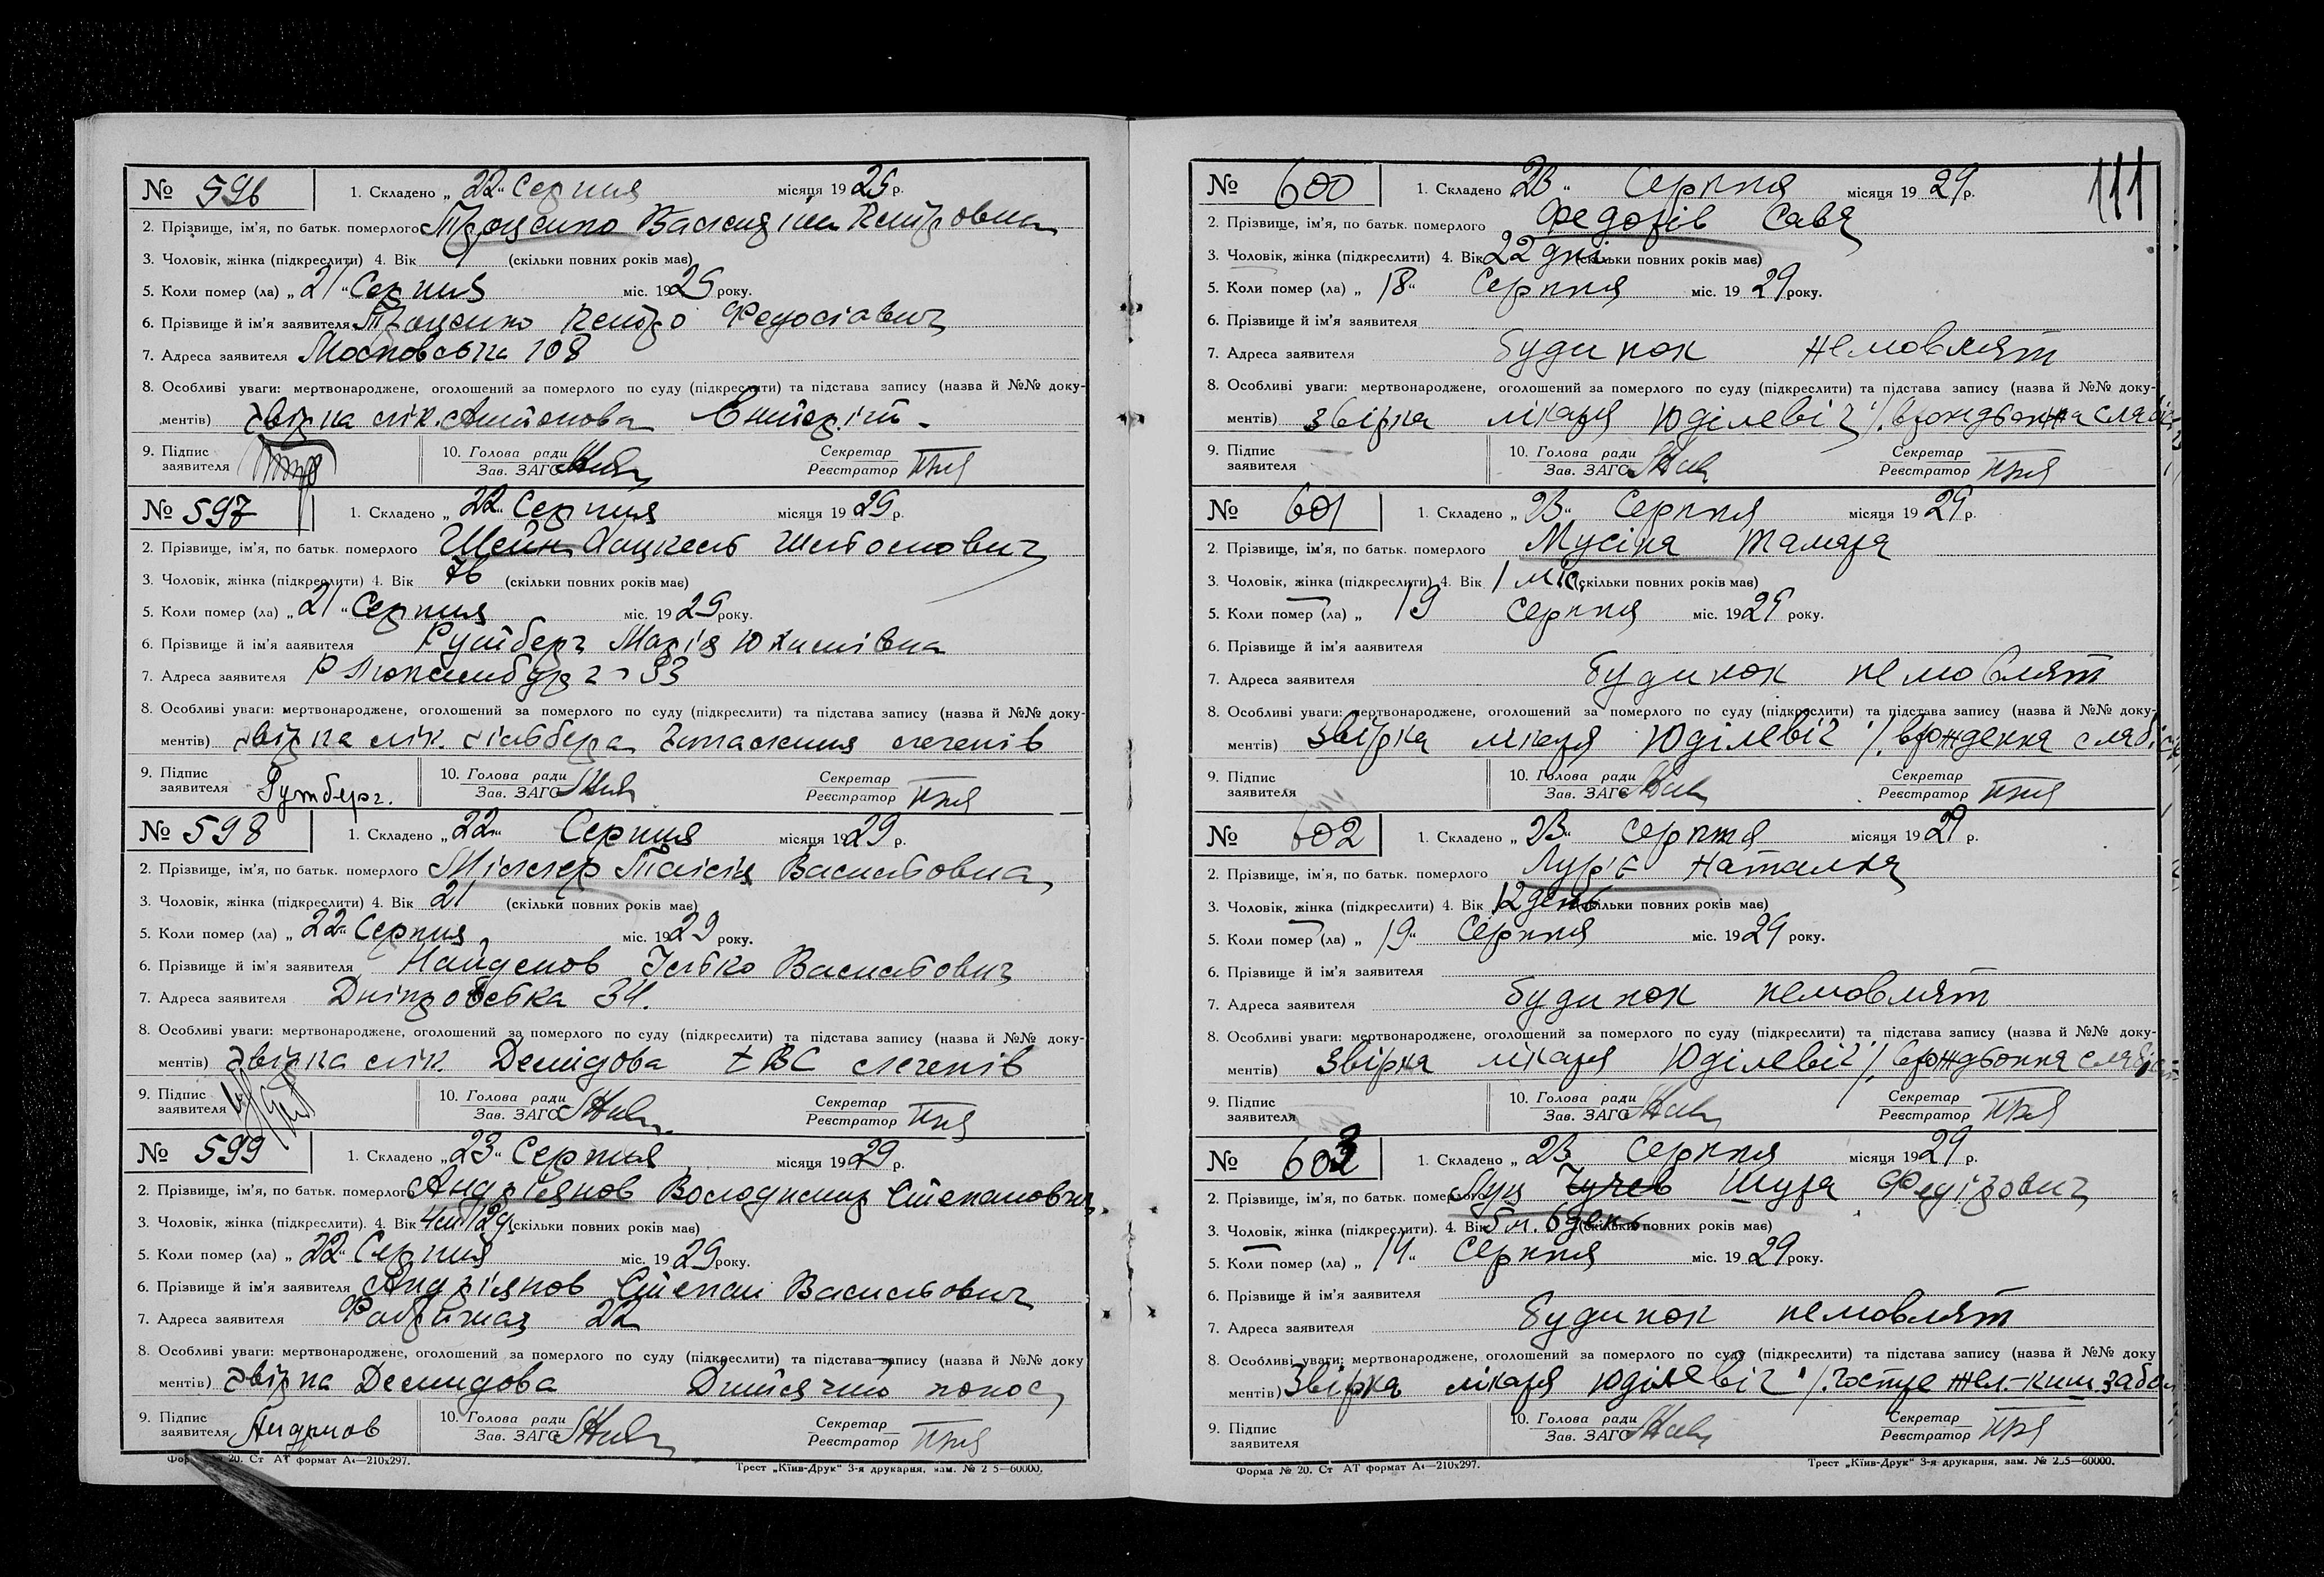 № 596 1. Складено „22“ Серпня місяця 1929 р.
2. Прізвище, ім'я, по батьк. померлого Троценко Петровна
3. Чоловік, жінка (підкреслити) 4. Вік 1 (скільки повних років має)
5. Коли помер (ла) „21“ Серпня міс. 1929 року.
6. Прізвище й ім'я заявителя Троценко Петро Федосіавич
7. Адреса заявителя Московська 108
8. Особливі уваги: мертвонароджене, оголошений за померлого по суду (підкреслити) та підстава запису (назва й №№ доку-
ментів) звірка лік. Антонова Ентеріт
9. Підпис заявителя 10. Голова ради Зав. ЗАГС Секретар Реєстратор
№ 597 1. Складено „22“ Серпня місяця 1929 р.
2. Прізвище, ім'я, по батьк. померлого Шейн Хацкель
3. Чоловік, жінка (підкреслити) 4. Вік 76 (скільки повних років має)
5. Коли помер (ла) „21“ Серпня міс. 1929 року.
6. Прізвище й ім'я заявителя Рутберг Марія Юхимівна
7. Адреса заявителя Р Люксембург 33
8. Особливі уваги: мертвонароджене, оголошений за померлого по суду (підкреслити) та підстава запису (назва й №№ доку-
ментів) звірка лік. Гільбера легенів
9. Підпис заявителя Рутберг. 10. Голова ради Зав. ЗАГС Секретар Реєстратор
№ 598 1. Складено „22“ Серпня місяця 1929 р.
2. Прізвище, ім'я, по батьк. померлого Міллер Таісія Васильовна
3. Чоловік, жінка (підкреслити) 4. Вік 21 (скільки повних років має)
5. Коли помер (ла) „22“ Серпня міс. 1929 року.
6. Прізвище й ім'я заявителя Найденов Ілько Васильович
7. Адреса заявителя Дніпровська 34.
8. Особливі уваги: мертвонароджене, оголошений за померлого по суду (підкреслити) та підстава запису (назва й №№ доку-
ментів) звірка лік. Демідова tBC легенів
9. Підпис заявителя 10. Голова ради Зав. ЗАГС Секретар Реєстратор
№ 599 1. Складено „23“ Серпня місяця 1929 р.
2. Прізвище, ім'я, по батьк. померлого Андріянов Володимир Степанович
3. Чоловік, жінка (підкреслити). 4. Вік 4 м 12 д. (скільки повних років має)
5. Коли помер (ла) „22“ Серпня міс. 1929 року.
6. Прізвище й ім'я заявителя Андріянов Степан Васильович
7. Адреса заявителя 22
8. Особливі уваги: мертвонароджене, оголошений за померлого по суду (підкреслити) та підстава запису (назва й №№ доку
ментів) звірка Демидова Дитячий понос
9. Підпис заявителя 10. Голова ради Зав. ЗАГС Секретар Реєстратор
Форма № 20. Ст АТ формат А4—210х297. Трест „Київ-Друк“ 3-я друкарня, зам. № 2 5—60000.
111
№ 600 1. Складено „23“ Серпня місяця 1929 р.
2. Прізвище, ім'я, по батьк. померлого Федорів Сава
3. Чоловік, жінка (підкреслити) 4. Вік 22 дні (скільки повних років має)
5. Коли помер (ла) „18“ Серпня міс. 1929 року.
6. Прізвище й ім'я заявителя
7. Адреса заявителя будинок немовлят
8. Особливі уваги: мертвонароджене, оголошений за померлого по суду (підкреслити) та підстава запису (назва й №№ доку-
ментів) звірка лікаря Юділевіч
9. Підпис заявителя 10. Голова ради Зав. ЗАГС Секретар Реєстратор
№ 601 1. Складено „23“ Серпня місяця 1929 р.
2. Прізвище, ім'я, по батьк. померлого Мусіна Тамара
3. Чоловік, жінка (підкреслити) 4. Вік 1 міс. (скільки повних років має)
5. Коли помер (ла) „19 серпня міс. 1929 року.
6. Прізвище й ім'я заявителя
7. Адреса заявителя будинок немовлят
8. Особливі уваги: мертвонароджене, оголошений за померлого по суду (підкреслити) та підстава запису (назва й №№ доку-
ментів) звірка лікаря Юділевіч
9. Підпис заявителя 10. Голова ради Зав. ЗАГС Секретар Реєстратор
№ 602 1. Складено „23“ серпня місяця 1929 р.
2. Прізвище, ім'я, по батьк. померлого Лур'є Наталія
3. Чоловік, жінка (підкреслити) 4. Вік 12 день (скільки повних років має)
5. Коли помер (ла) „19“ Серпня міс. 1929 року.
6. Прізвище й ім'я заявителя
7. Адреса заявителя будинок немовлят
8. Особливі уваги: мертвонароджене, оголошений за померлого по суду (підкреслити) та підстава запису (назва й №№ доку-
ментів) звірка лікаря Юділевіч
9. Підпис заявителя 10. Голова ради Зав. ЗАГС Секретар Реєстратор
№ 603 1. Складено „23“ Серпня місяця 1929 р.
2. Прізвище, ім'я, по батьк. померлого Луц Шура
3. Чоловік, жінка (підкреслити). 4. Вік 5 м. 6 день (скільки повних років має)
5. Коли помер (ла) „14“ Серпня міс. 1929 року.
6. Прізвище й ім'я заявителя
7. Адреса заявителя будинок немовлят
8. Особливі уваги: мертвонароджене, оголошений за померлого по суду (підкреслити) та підстава запису (назва й №№ доку
ментів) Звірка лікаря Юділевіч /. гостре жел.-киш. забол
9. Підпис заявителя 10. Голова ради Зав. ЗАГС Секретар Реєстратор
Форма № 20. Ст АТ формат А4—210х297. Трест „Київ-Друк“ 3-я друкарня, зам. № 2 5—60000.